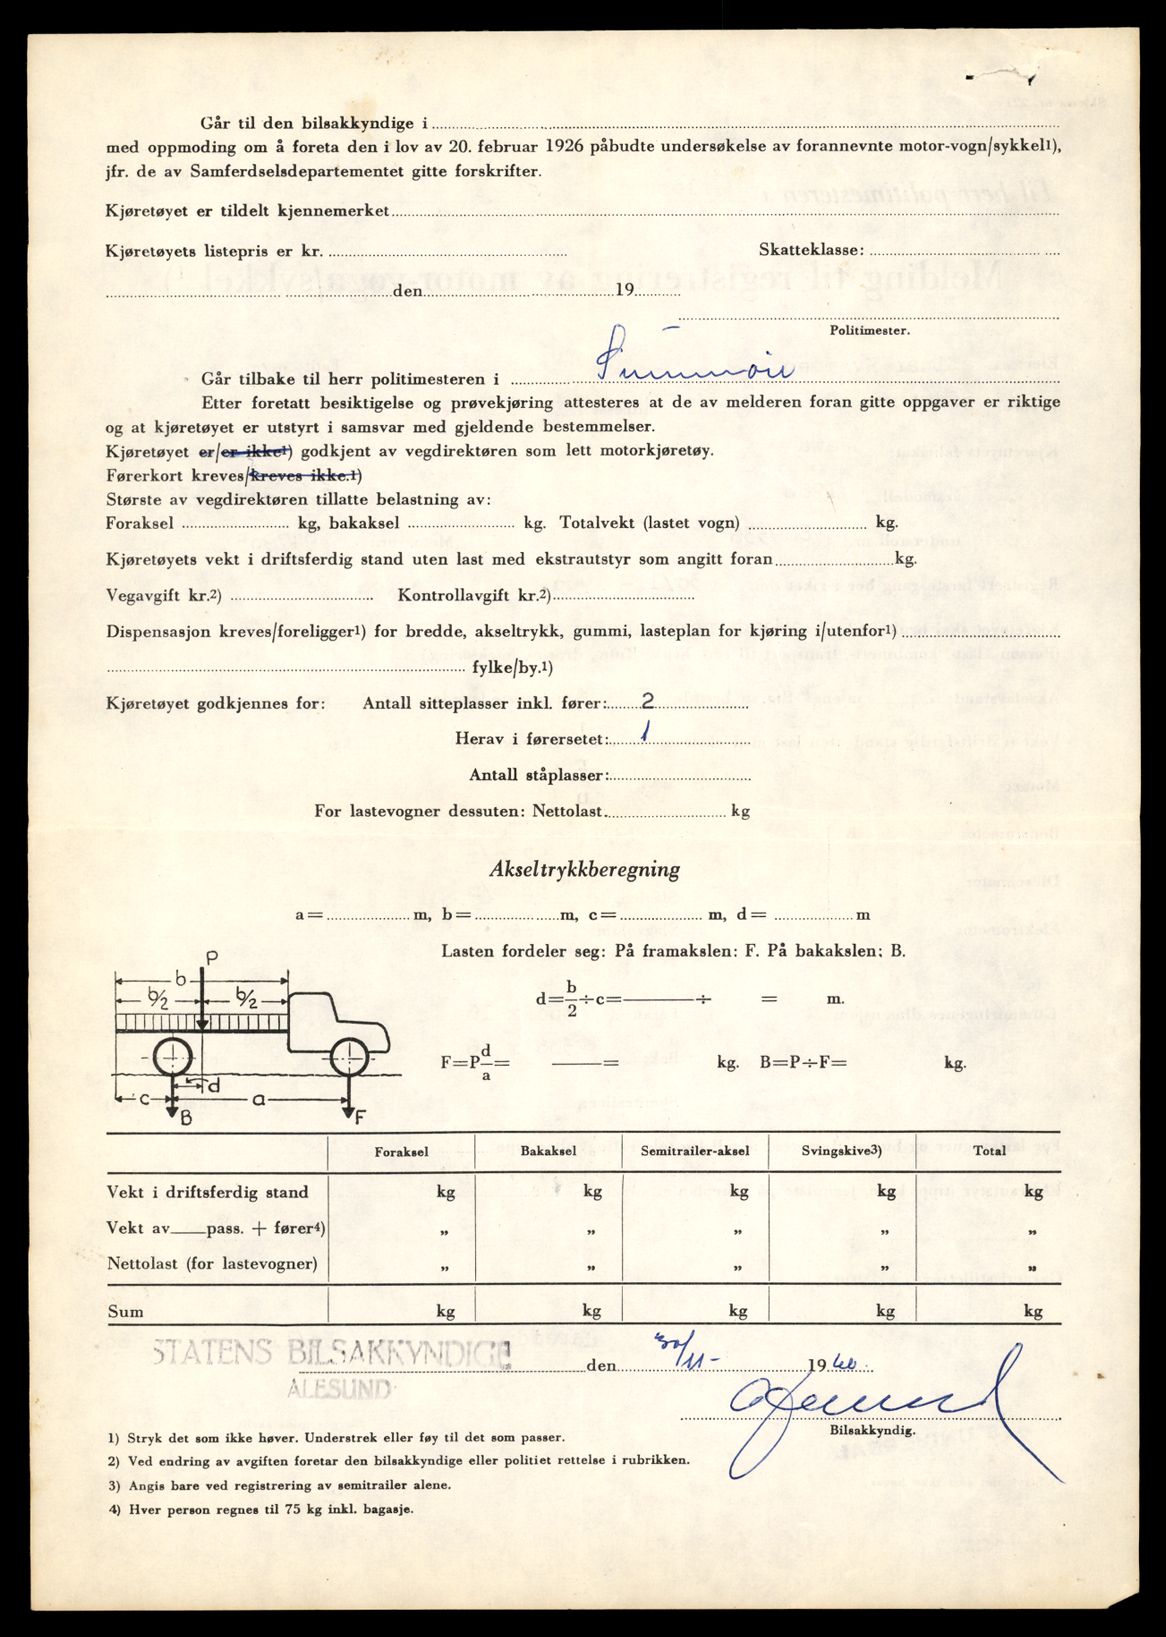 Går til den bilsakkyndige i
med oppmoding om å foreta den i lov av 20. februar 1926 påbudte undersøkelse av forannevnte motor-vogn/sykkel1),
jfr. de av Samferdselsdepartementet gitte forskrifter.
Kjøretøyet er tildelt kjennemerket
Kjøretøyets listepris er kr. Skatteklasse:
den 19
Politimester.
Går tilbake til herr politimesteren i Sunnmøre
Etter foretatt besiktigelse og prøvekjøring attesteres at de av melderen foran gitte oppgaver er riktige
og at kjøretøyet er utstyrt i samsvar med gjeldende bestemmelser.
Kjøretøyet er/er ikke1) godkjent av vegdirektøren som lett motorkjøretøy.
Førerkort kreves/kreves ikke.1)
Største av vegdirektøren tillatte belastning av:
Foraksel kg, bakaksel kg. Totalvekt (lastet vogn) kg.
Kjøretøyets vekt i driftsferdig stand uten last med ekstrautstyr som angitt foran kg.
Vegavgift kr.2) Kontrollavgift kr.2)
Dispensasjon kreves/foreligger1) for bredde, akseltrykk, gummi, lasteplan for kjøring i/utenfor1)
fylke/by.1)
Kjøretøyet godkjennes for: Antall sitteplasser inkl. fører: 2
Herav i førersetet: 1
Antall ståplasser:
For lastevogner dessuten: Nettolast. kg
Akseltrykkberegning
a = m, b = m, c = m, d = m
Lasten fordeler seg: På framakslen: F. På bakakslen: B.
P
b
b/2 b/2
d = b/2 ÷ c = ÷ = m.
F = P d/a = = kg. B = P ÷ F = kg.
d
c a
B F
Foraksel Bakaksel Semitrailer-aksel Svingskive3) Total
Vekt i driftsferdig stand kg kg kg kg kg
Vekt av pass. + fører4) „ „ „ „ „
Nettolast (for lastevogner) „ „ „ „ „
Sum kg kg kg kg kg
STATENS BILSAKKYNDIGE den 30/11- 1960.
ÅLESUND
Bilsakkyndig.
1) Stryk det som ikke høver. Understrek eller føy til det som passer.
2) Ved endring av avgiften foretar den bilsakkyndige eller politiet rettelse i rubrikken.
3) Angis bare ved registrering av semitrailer alene.
4) Hver person regnes til 75 kg inkl. bagasje.